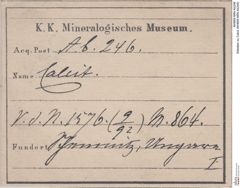 K. K. Mineralogisches Museum.
Acq. Post A. b. 246.
Name Calcit.
V. d. N. 1576. (2/92) M. 864.
Fundort Schemnitz, Ungarn
I